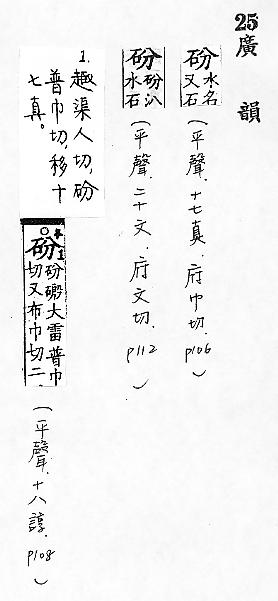 25廣韻
砏水名又石(平聲．十七真．府巾切．p106)
砏砏汃水石(平聲．二十文．府文切．p112)
1.趣渠人切,砏
普巾切,移十
七真。
砏砏磤大雷普巾切又布巾切二(平聲．十八諄．p108)